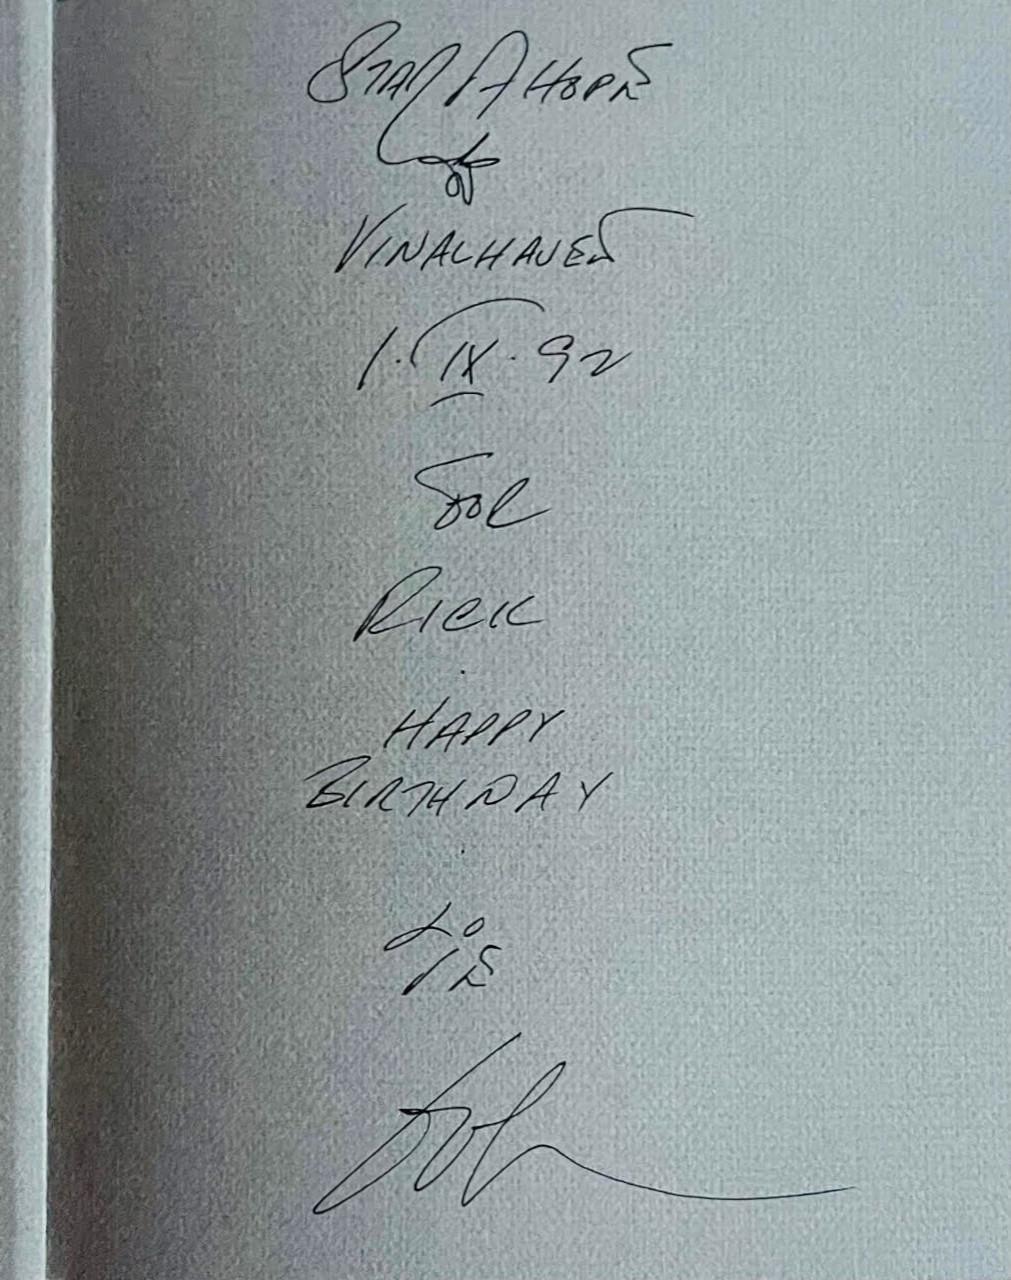 STAR OF HOPE
VINALHAVEN
1.IX.92
FOR
RICK
HAPPY
BIRTHDAY
LO
VE